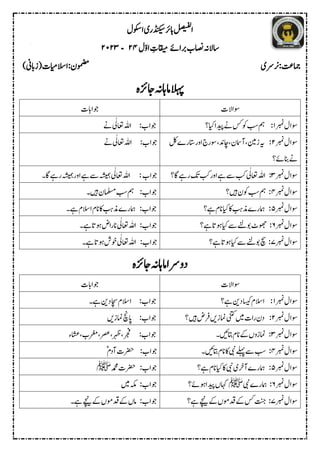 الفیصل ہائر سیکنڈری اسکول
سالانہ نصاب برائے میقاتِ اوّل ۲۴ - ۲۰۲۳
جماعت: نرسری
مضمون: اسلامیات (زبانی)
پہلا ماہانہ جائزہ
سوالات جوابات
سوال نمبر۱: ہم سب کو کس نے پیدا کیا؟ جواب: اللہ تعالیٰ نے
سوال نمبر۲: یہ زمین، آسمان، چاند، سورج اور ستارے کل جواب: اللہ تعالیٰ نے
نے بنائے؟
سوال نمبر۳: اللہ تعالیٰ کب سے ہے اور کب تک رہے گا؟ جواب: اللہ تعالیٰ ہمیشہ سے ہے اور ہمیشہ رہے گا۔
سوال نمبر۴: ہم سب کون ہیں؟ جواب: ہم سب مسلمان ہیں۔
سوال نمبر۵: ہمارے مذہب کا کیا نام ہے؟ جواب: ہمارے مذہب کا نام اسلام ہے۔
سوال نمبر۶: جھوٹ بولنے سے کیا ہوتا ہے؟ جواب: اللہ تعالیٰ ناراض ہوتا ہے۔
سوال نمبر۷: سچ بولنے سے کیا ہوتا ہے؟ جواب: اللہ تعالیٰ خوش ہوتا ہے۔
دوسرا ماہانہ جائزہ
سوالات جوابات
سوال نمبر۱: اسلام کیسا دین ہے؟ جواب: اسلام سچا دین ہے۔
سوال نمبر۲: دن رات میں کتنی نمازیں فرض ہیں؟ جواب: پانچ نمازیں
سوال نمبر۳: نمازوں کے نام بتائیں۔ جواب: فجر، ظہر، عصر، مغرب، عشاء
سوال نمبر۴: سب سے پہلے نبی کا نام بتائیں۔ جواب: حضرت آدمؑ
سوال نمبر۵: ہمارے آخری نبی کا کیا نام ہے؟ جواب: حضرت محمد ﷺ
سوال نمبر۶: ہمارے نبی ﷺ کہاں پیدا ہوئے؟ جواب: مکہ میں
سوال نمبر۷: جنت کس کے قدموں کے نیچے ہے؟ جواب: ماں کے قدموں کے نیچے ہے۔